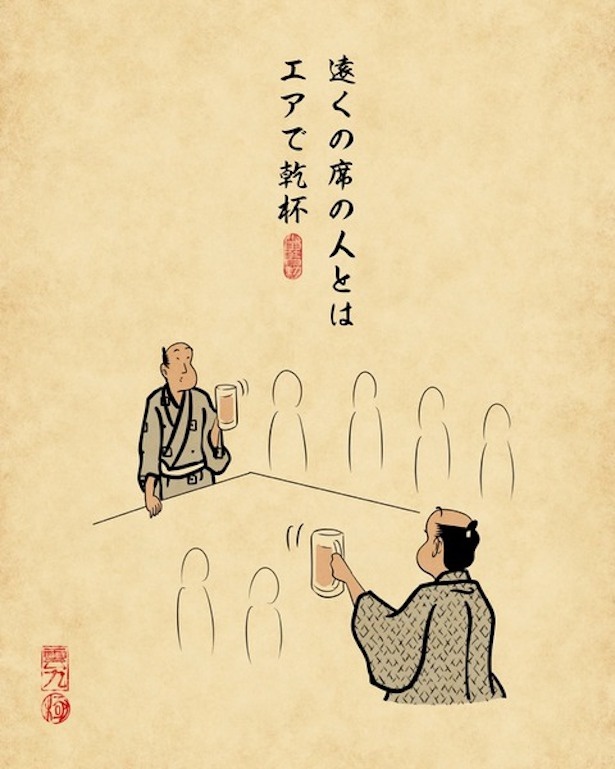 遠くの席の人とは
エアで乾杯